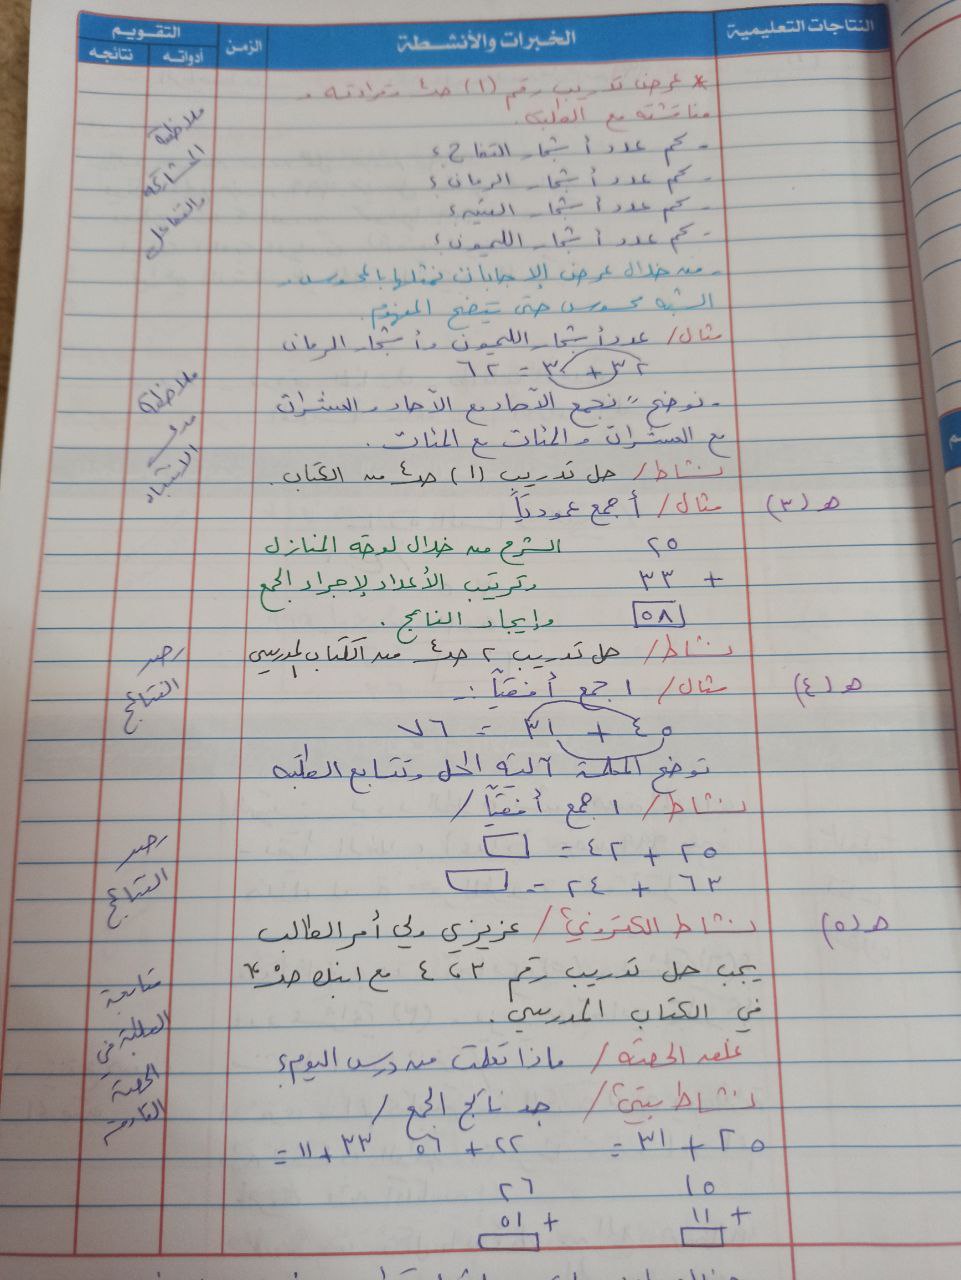 النتاجات التعليمية
الخبرات والأنشطة
الزمن
التقويم
أدواته
نتائجه
* عرض تدريب رقم (١) صـ٤ وقراءته و
مناقشته مع الطلبة.
- كم عدد أشجار التفاح؟
- كم عدد أشجار الرمان؟
- كم عدد أشجار التين؟
- كم عدد أشجار الليمون؟
ملاحظة
المشاركة
والتفاعل
- من خلال عرض الإجابات نمثلها بالمحسوس و
الشبه محسوس حتى يتضح المفهوم.
مثال/ عدد أشجار الليمون وأشجار الرمان
٣٢ + ٣٠ = ٦٢
- نوضح " نجمع الآحاد مع الآحاد والعشرات
مع العشرات والمئات مع المئات.
نشاط/ حل تدريب (١) صـ٤ من الكتاب.
ملاحظة
مدى
الانتباه
هـ (٣)
مثال/ أجمع عمودياً
٢٥
+ ٣٣
٥٨
الشرح من خلال لوحة المنازل
وترتيب الأعداد لإجراء الجمع
وإيجاد الناتج.
نشاط/ حل تدريب ٢ صـ٤ من الكتاب المدرسي
رصد
النتائج
هـ (٤)
مثال/ اجمع أفقياً :-
٤٥ + ٣١ = ٧٦
توضح المعلمة آلية الحل وتتابع الطلبة
نشاط/ اجمع أفقياً /
٢٥ + ٤٢ =
٦٣ + ٢٤ =
رصد
النتائج
هـ (٥)
نشاط الكتروني/ عزيزي ولي أمر الطالب
يجب حل تدريب رقم ٣، ٤ مع ابنك صـ
في الكتاب المدرسي.
غلق الحصة/ ماذا تعلمت من درس اليوم؟
متابعة
الطلبة في
الحصة
القادمة
نشاط بيتي/ جد ناتج الجمع /
٢٥ + ٣١ =
٢٢ + ٥٦
٣٣ + ١١ =
١٥
+ ١١
٢٦
+ ٥١